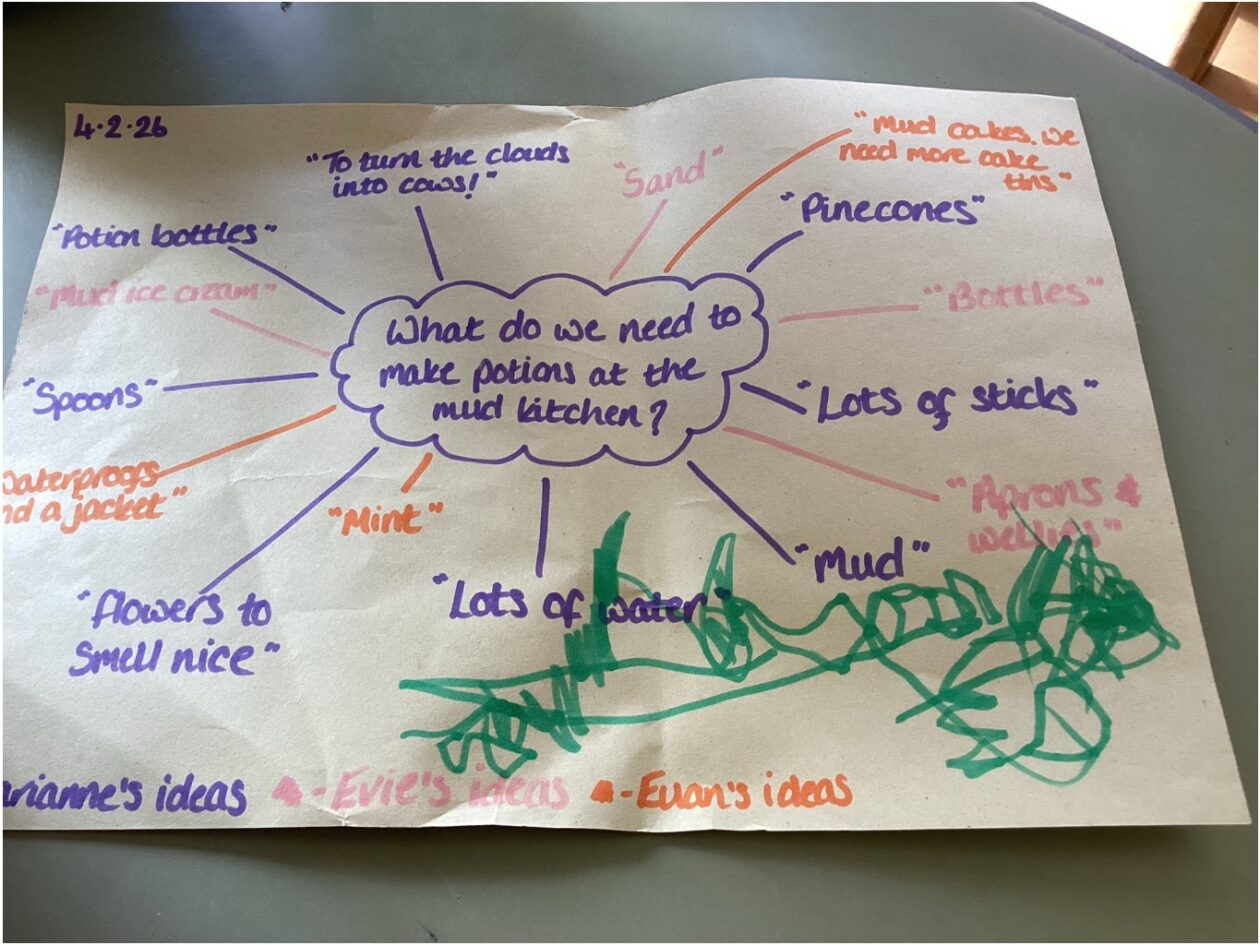 4.2.26
"To turn the clouds
into cows!"
"Sand"
"Mud cakes. We
need more cake
tins"
"Pinecones"
"Potion bottles"
"Mud ice cream"
"Bottles"
What do we need to
make potions at the
mud kitchen?
"Spoons"
"Lots of sticks"
aterproofs
nd a jacket"
"Mint"
"Aprons &
wellies"
"Mud"
"Lots of water"
"flowers to
smell nice"
arianne's ideas
- Evie's ideas
- Evan's ideas